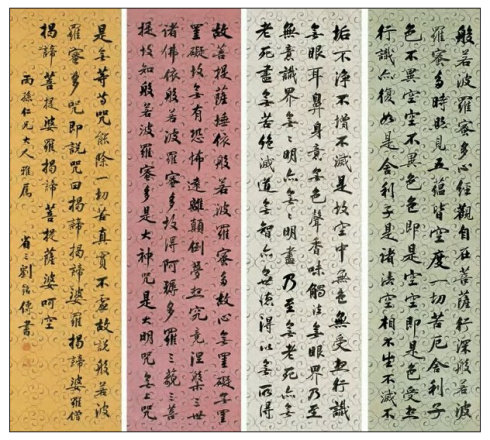 般若波羅蜜多心經觀自在菩薩行深般若波
羅蜜多時照見五蘊皆空度一切苦厄舍利子
色不異空空不異色色即是空空即是色受想
行識亦復如是舍利子是諸法空相不生不滅不
垢不淨不增不滅是故空中無色無受想行識
無眼耳鼻身意無色聲香味觸法無眼界乃至
無意識界無〻明亦無〻明盡乃至無老死亦無
老死盡無苦滅道無智亦無得以無所得
故菩提薩埵依般若波羅蜜多故心無罣礙無罣
罣礙故無有恐怖遠離顛倒夢想究竟涅槃三世
諸佛依般若波羅蜜多故得阿耨多羅三藐三菩
提故知般若波羅蜜多是大神咒是大明咒無上咒
是無等等咒能除一切苦真實不虛故說般若波
羅蜜多咒即說咒曰揭諦揭諦婆羅揭諦婆羅僧
揭諦菩提婆羅揭諦菩提薩婆呵空
雨孫仁兄大人雅屬
省三劉銘傳書